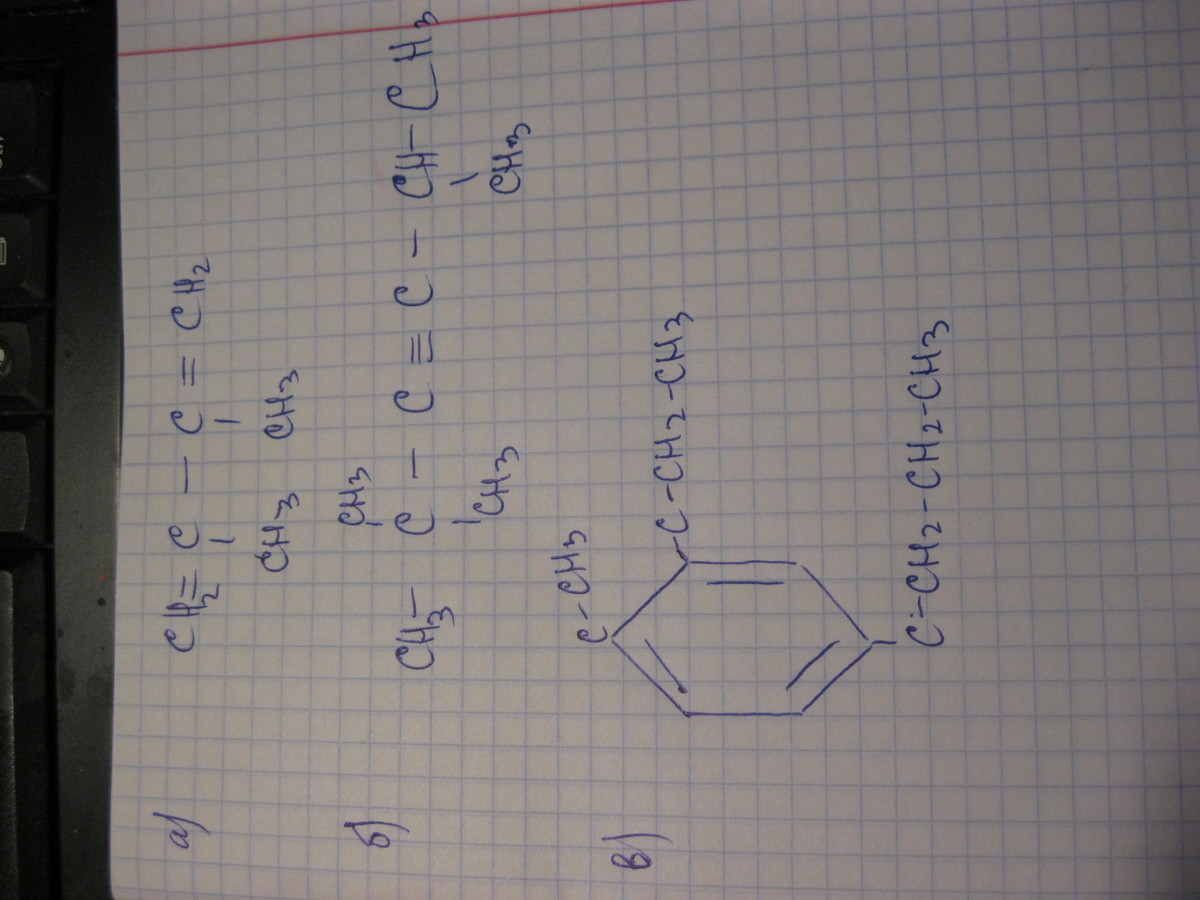 а) CH2=C – C = CH2
CH3 CH3
CH3
б) CH3– C – C ≡ C – CH–CH3
CH3 CH3
в) C-CH3
C-CH2-CH3
C-CH2-CH2-CH3